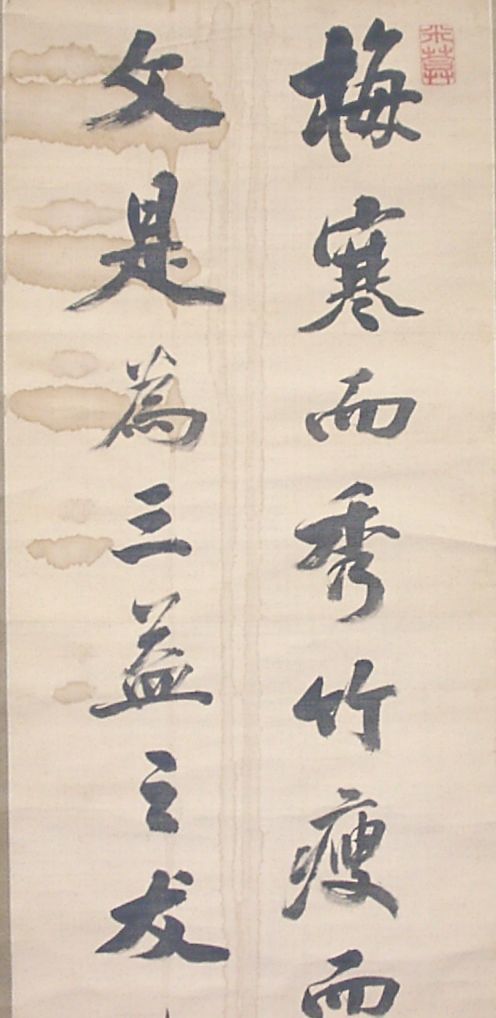 梅寒而秀竹瘦而
文是為三益之友